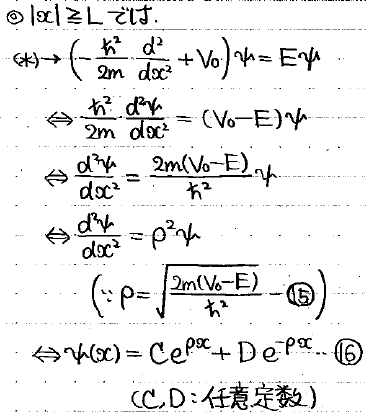 ◎ |x| ≧ L では.
(*)→ (-ℏ²/2m · d²/dx² + V₀)ψ = Eψ
⇔ ℏ²/2m · d²ψ/dx² = (V₀-E)ψ
⇔ d²ψ/dx² = 2m(V₀-E)/ℏ² ψ
⇔ d²ψ/dx² = ρ²ψ
(∵ ρ = √(2m(V₀-E)/ℏ²) -⑮)
⇔ ψ(x) = Ce^{ρx} + De^{-ρx} … ⑯
(C,D:任意定数)